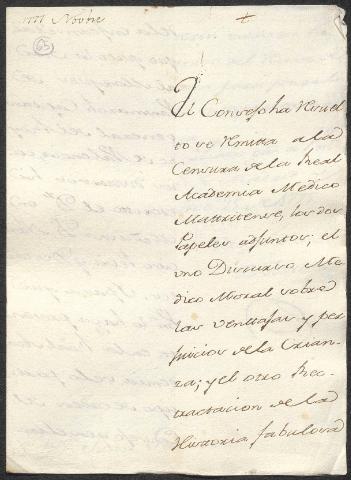 1777 Nov.bre
65
El Consejo ha resuel
to se remita a la
Censura de la Real
Academia Medico
Matritense, los dos
Papeles adjuntos; el
uno Discurso, Me
dico Moral sobre
las ventajas y per
juicios de la Crian
za; y el otro Re
tractacion de la
Historia fabulosa